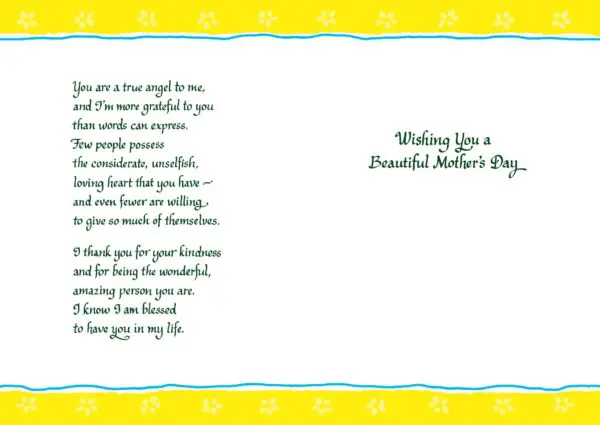 You are a true angel to me,
and I'm more grateful to you
than words can express.
Few people possess
the considerate, unselfish,
loving heart that you have ~
and even fewer are willing
to give so much of themselves.
I thank you for your kindness
and for being the wonderful,
amazing person you are.
I know I am blessed
to have you in my life.
Wishing You a
Beautiful Mother's Day